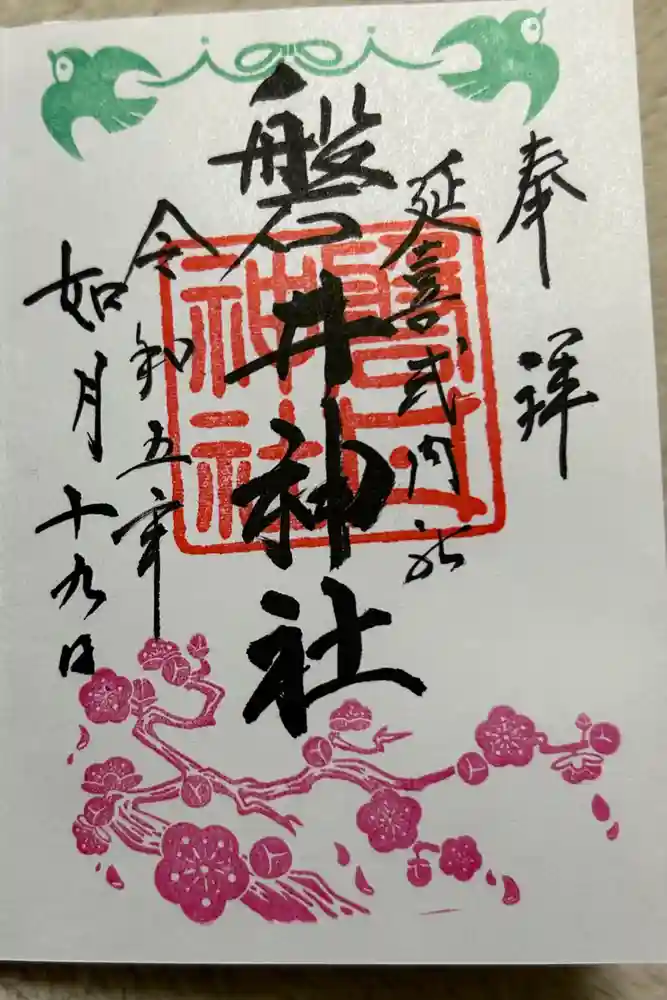 奉拝
延喜式内社
磐井神社
令和五年
如月十九日
神社